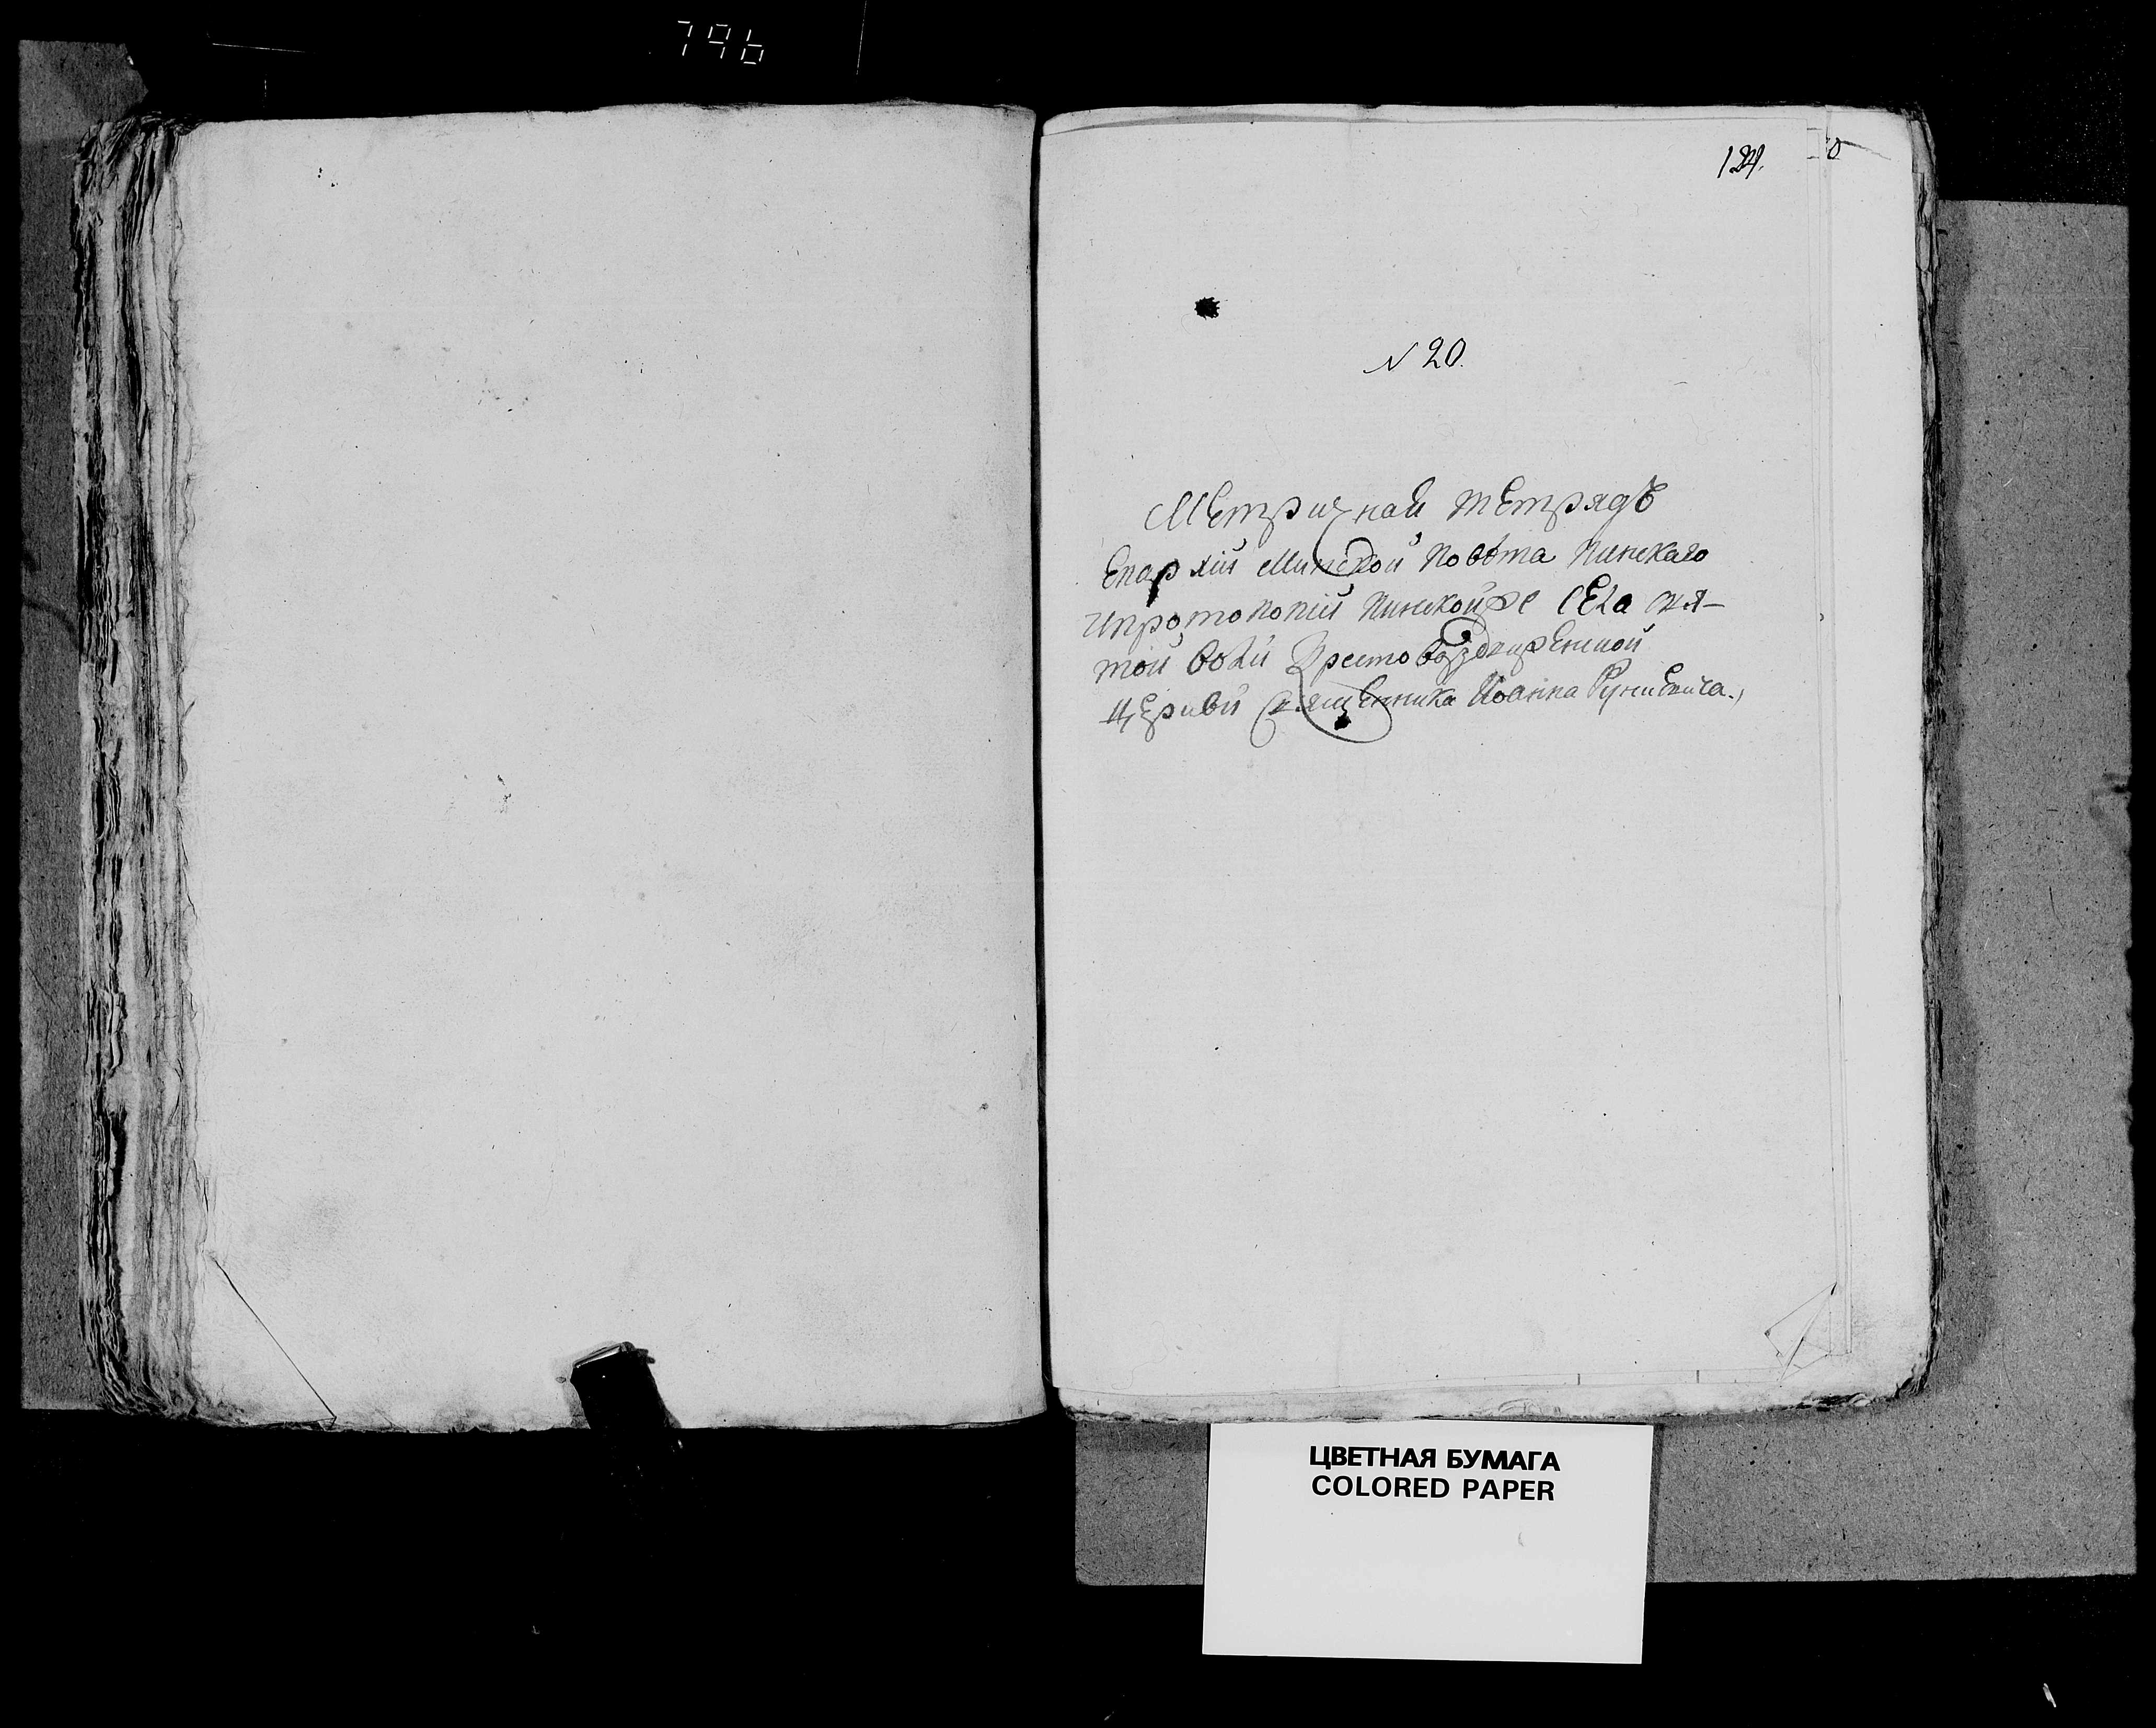 796
124.
N 20.
Метричнаѧ тетрядъ
Епархіи Минской Повѣта Пинскаго
ипротопопіи Пинскойже села свя-
той воли Крестовоздвиженной
церкви священника Иоанна Руниевича.,
ЦВЕТНАЯ БУМАГА
COLORED PAPER